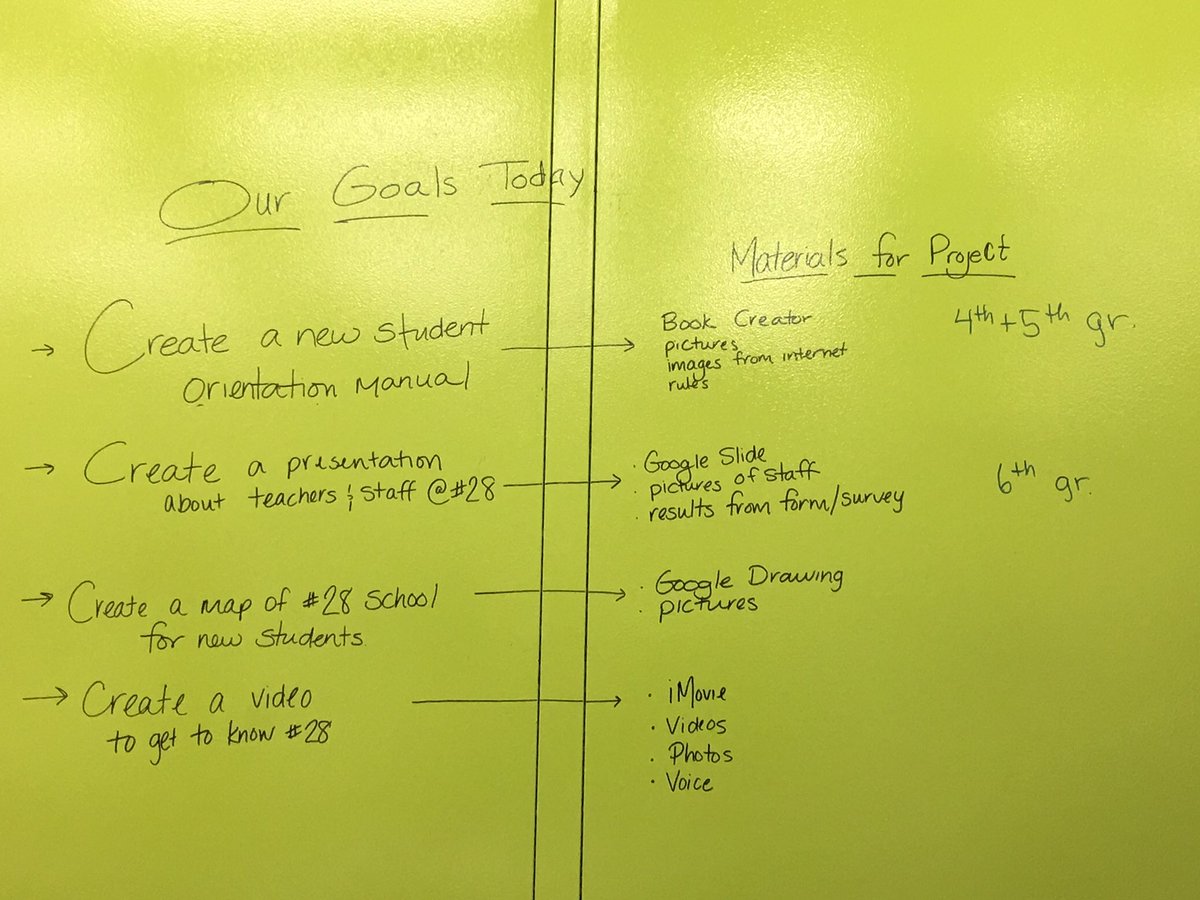 Our Goals Today
Materials for Project
→ Create a new student
orientation manual
Book Creator
pictures
images from internet
rules
4th + 5th gr.
→ Create a presentation
about teachers & staff @ #28
· Google Slide
· pictures of staff
· results from form/survey
6th gr.
→ Create a map of #28 School
for new students
· Google Drawing
· pictures
→ Create a video
to get to know #28
· iMovie
· Videos
· Photos
· Voice